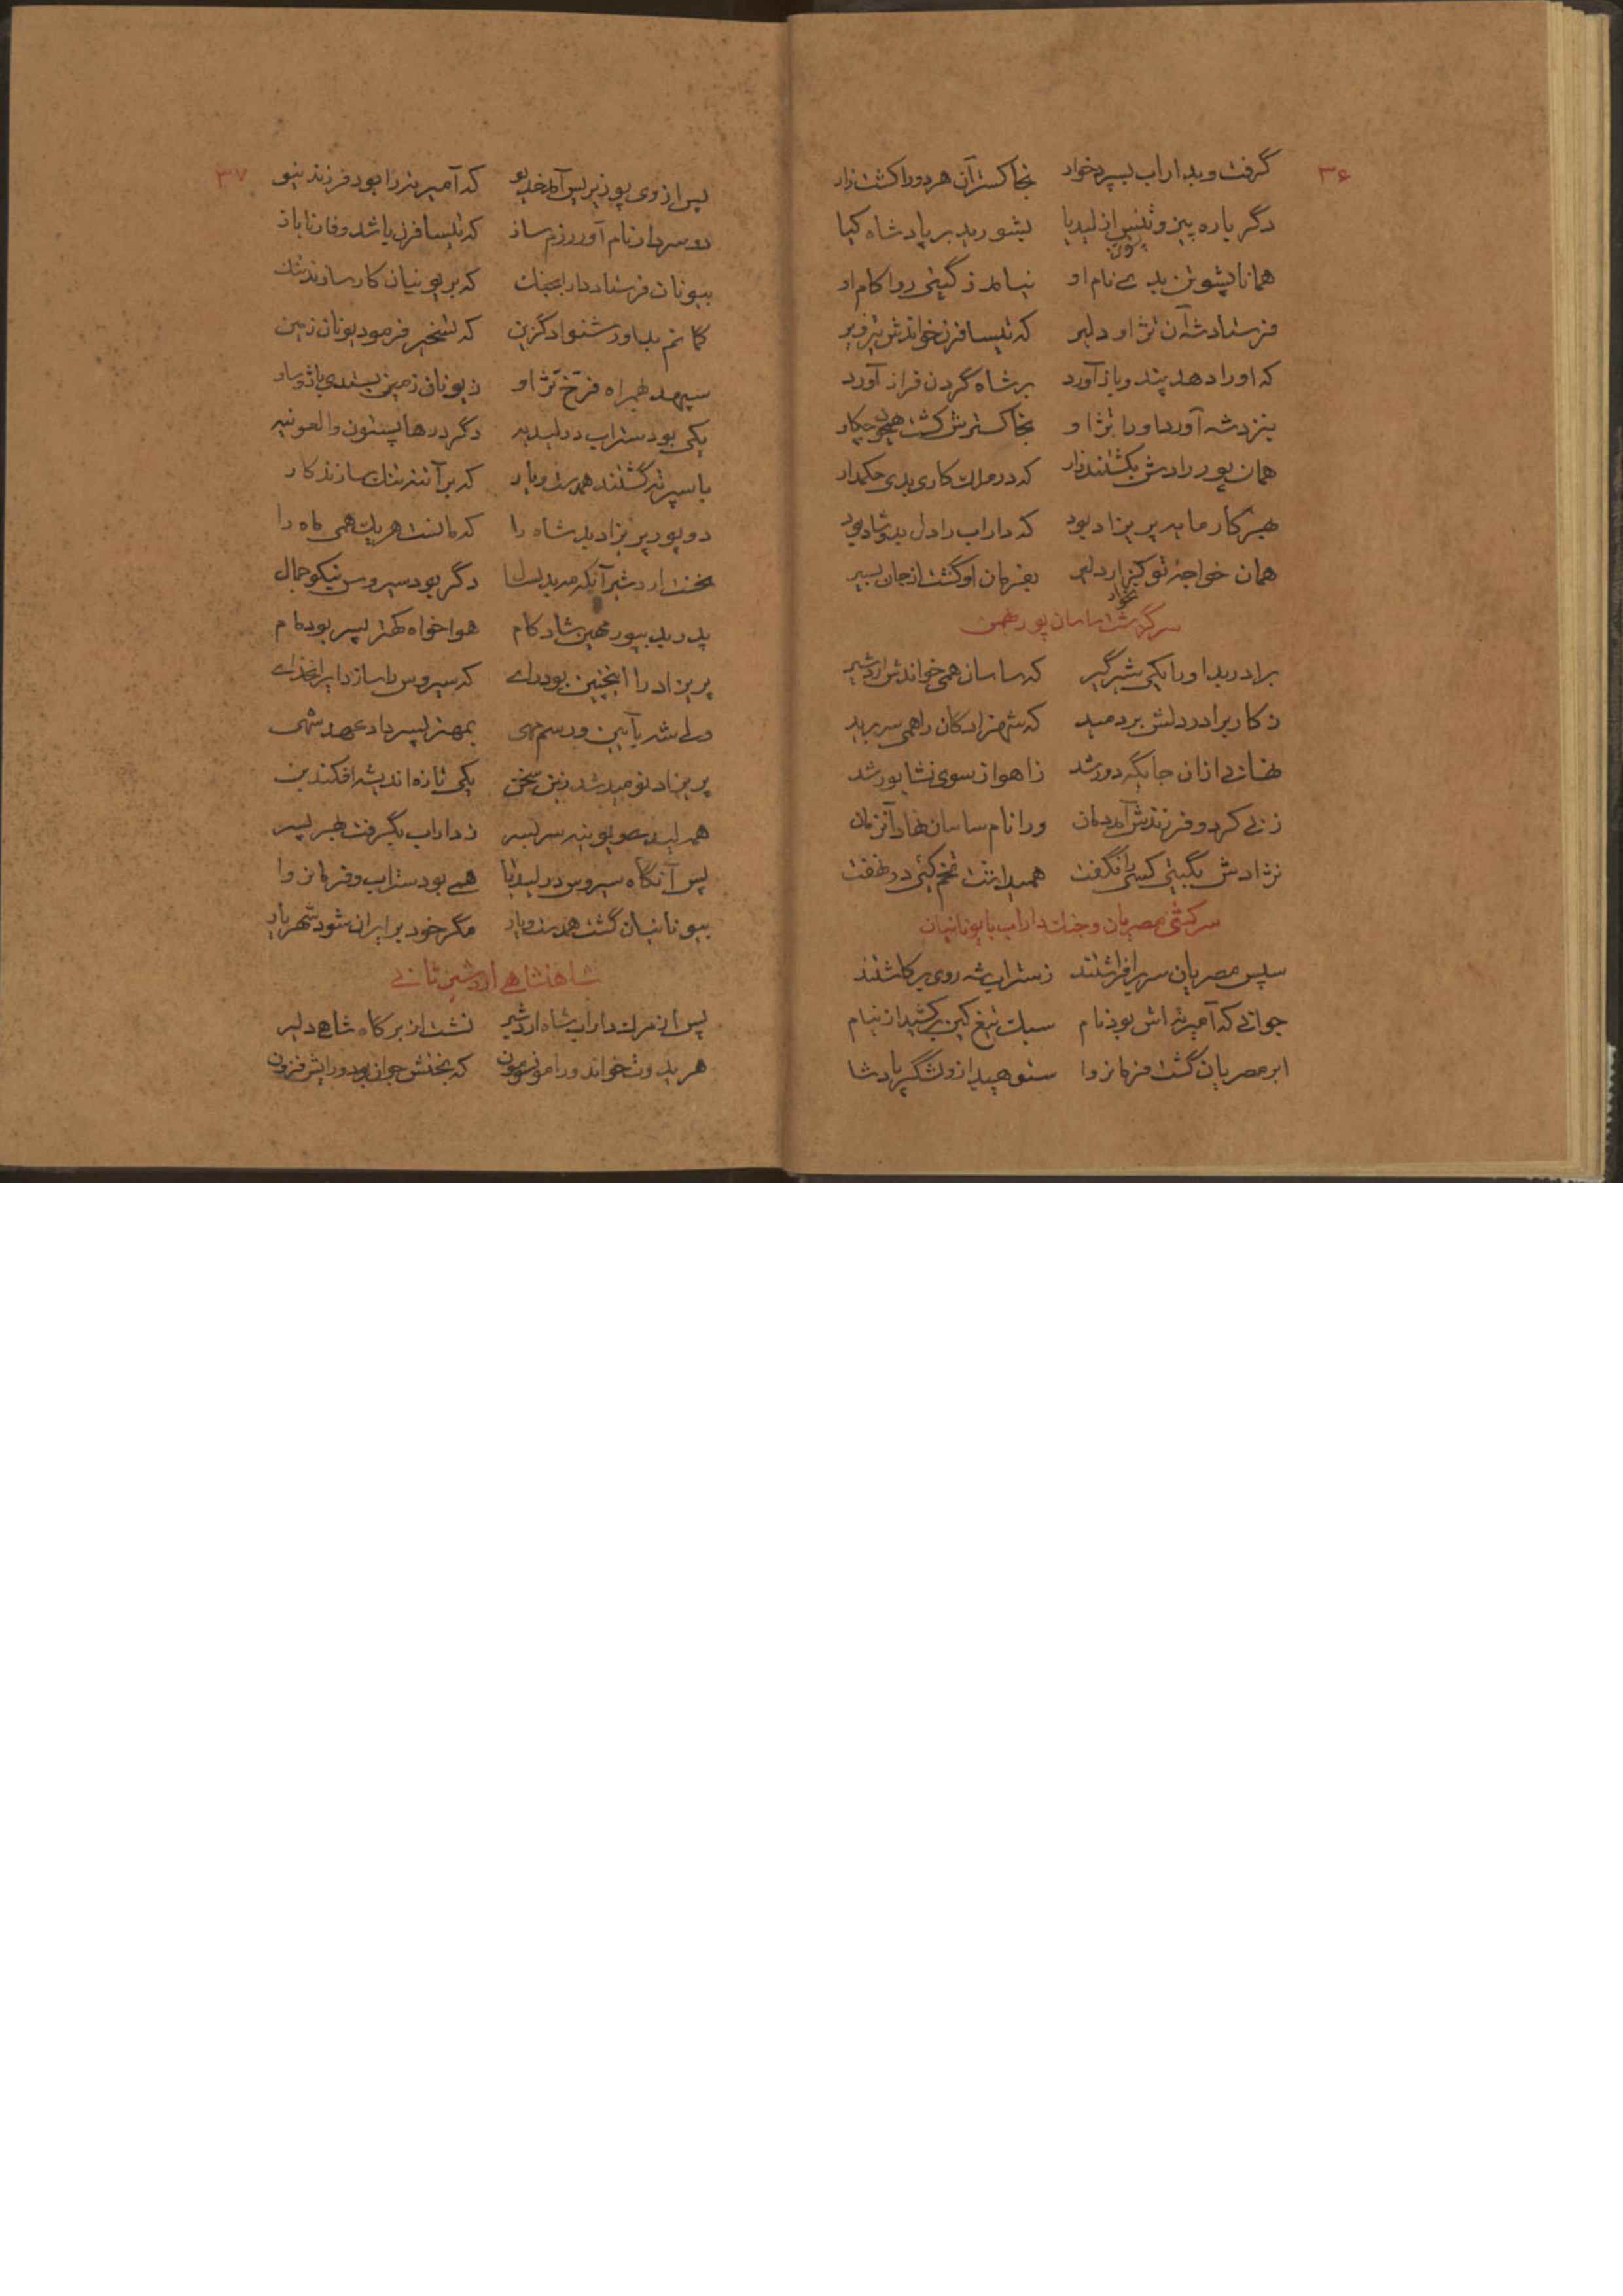 ۳۶
گرفت و بداراب بسپرد خوار بخاکستر آن هر دو را کشت زار
دگر باره پیزوتنس از لیدیا بشورید بر پادشاه کیا
همانا پشوتن بدی نام او نیامد ز گیتی روا کام او
فرستاد شه آن نژاو دلیر که تیسافرن خواندش تیزویر
که او را دهد پند و باز آورد بر شاه گردن فراز آورد
بنزد شه آورد او را نژاو بخاکسترش کشت همچون
همان پور رادش بکشتند زار که در ملک کاری بدی حکمدار
بهر کار مایه پریزاد بود که داراب را دل بدو شاد بود
همان خواجهٔ نو دلیر بفرمان او گشت از جان سیر
سرگذشت ساسان پور بهمن
برادر بد او را یکی شیرگیر که ساسان همی خواندش اردشیر
ز کار برادر دلش بردمید که شهزادگان را همی سر برید
نهانی از آن جایگه دور شد ز اهواز سوی نشابور شد
زنی کرد و فرزندش آمد دمان ورا نام ساسان نهاد آنزمان
نژادش بگیتی کسی را نگفت همیداشت تخم کئی در نهفت
سرکشی مصریان و جنگ داراب با یونانیان
سپس مصریان سر برافراشتند ز ستراب شه روی برکاشتند
جوانی که آمیرته اش بود نام سبک تیغ کین برکشید از نیام
ابر مصریان گشت فرمانروا ستوهید از و لشگر پادشا
۳۷
پس از وی پوزیریس آمد خدیو که آمیرته را بود فرزند نیو
دو سردار نام آور رزم ساز که تیسافرن باشد و فارناباذ
بیونان فرستاد دارا بجنگ که بر یونیان کار سازند تنگ
کمانم بیاور شنواد گزین که تسخیر فرمود یونان زمین
سپهبد بهمراه فرخ نژاو ز یونان زمین بستدی باژ و ساو
یکی بود ستراب در لیدیه دگر در هلسپنتون و
با سپرته گشتند همدست و یار که بر آتنه تنگ سازند کار
دو پور پریزاد بد شاه را که مانست هر یک همی ماه را
نخست اردشیر آنکه مه بد بسال دگر بود سیروس نیکو جمال
پدر بد بپور مهین شادکام هواخواه کهتر پسر بود مام
پریزاد را اینچنین بود رای که سیروس را سازد ایرانخدای
ولی شه بآیین و رسم مهی بمهتر پسر داد عهد شهی
پریزاد نومید شد زین سخن یکی تازه اندیشه افکند بن
همه لیدیه و یونیه سر بسر ز داراب بگرفت بهر پسر
پس آنگاه سیروس در لیدیا همی بود ستراب و فرمانروا
بیونانیان گشت همدست و یار مگر خود بر ایران شود شهریار
شاهنشاهی اردشیر ثانی
پس از مرگ داراب شاه اردشیر نشست از بر گاه شاهی دلیر
هردوت خواند ورا که بختش جوان بود و رایش فزون